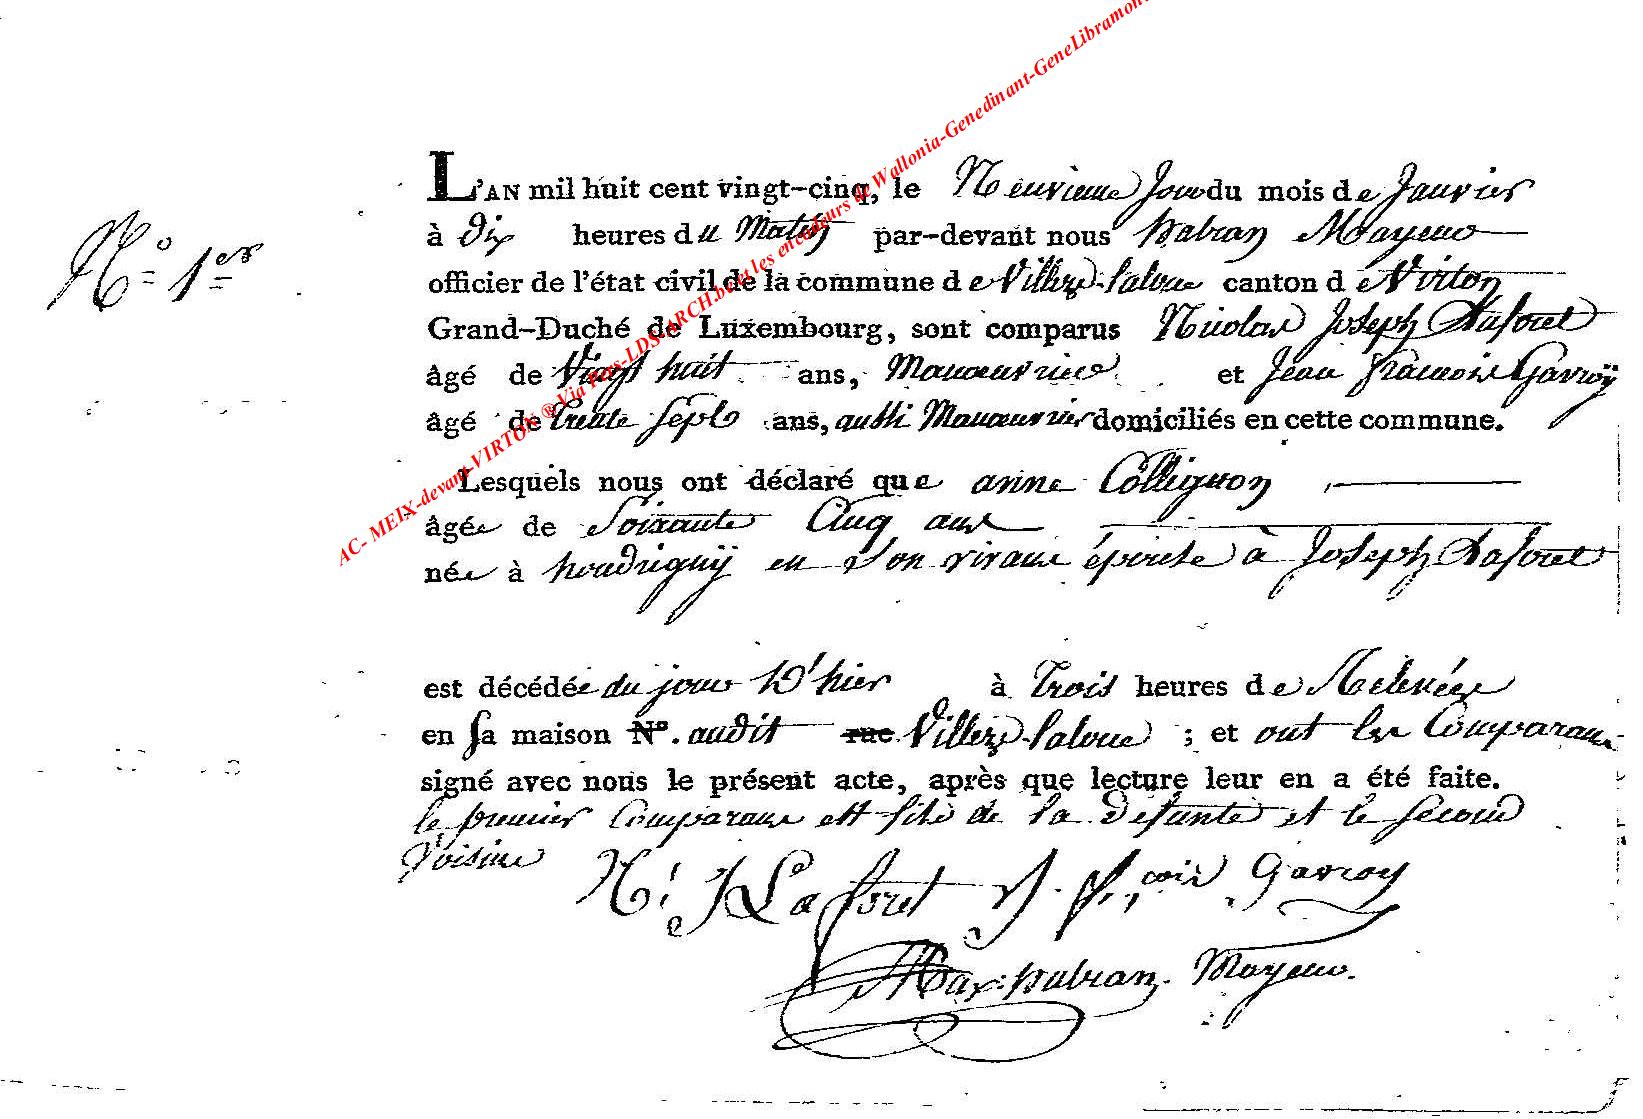 AC- MEIX-devant-VIRTON ® Via Très-LDS-ARCH.be et les encodeurs de Wallonia-Genedinant-GeneLibramont
N.o 1er
L'AN mil huit cent vingt-cinq, le Neuvieme Jour du mois de Janvier
à Dix heures du Matin par-devant nous habran Mayeur
officier de l'état civil de la commune de Villers-laloue canton de Virton
Grand-Duché de Luxembourg, sont comparus Nicolas Joseph Laforet
âgé de Vingt huit ans, Manoeuvrier et Jean francois Gavroÿ
âgé de trente Sept ans, aussi Manoeuvrier domiciliés en cette commune.
Lesquels nous ont déclaré que anne Collignon
âgée de Soixante Cinq ans
née à houdrignÿ en son vivant épouse à Joseph Laforet
est décédée du jour D'hier à trois heures de Relevées
en Sa maison N°. audit rue Villers-laloue ; et ont les Comparans
signé avec nous le présent acte, après que lecture leur en a été faite.
le premier Comparant est fils de la defunte et le second
Voisin
N.s J Laforet J. fr.çois Gavroy
Max: habran. Mayeur.